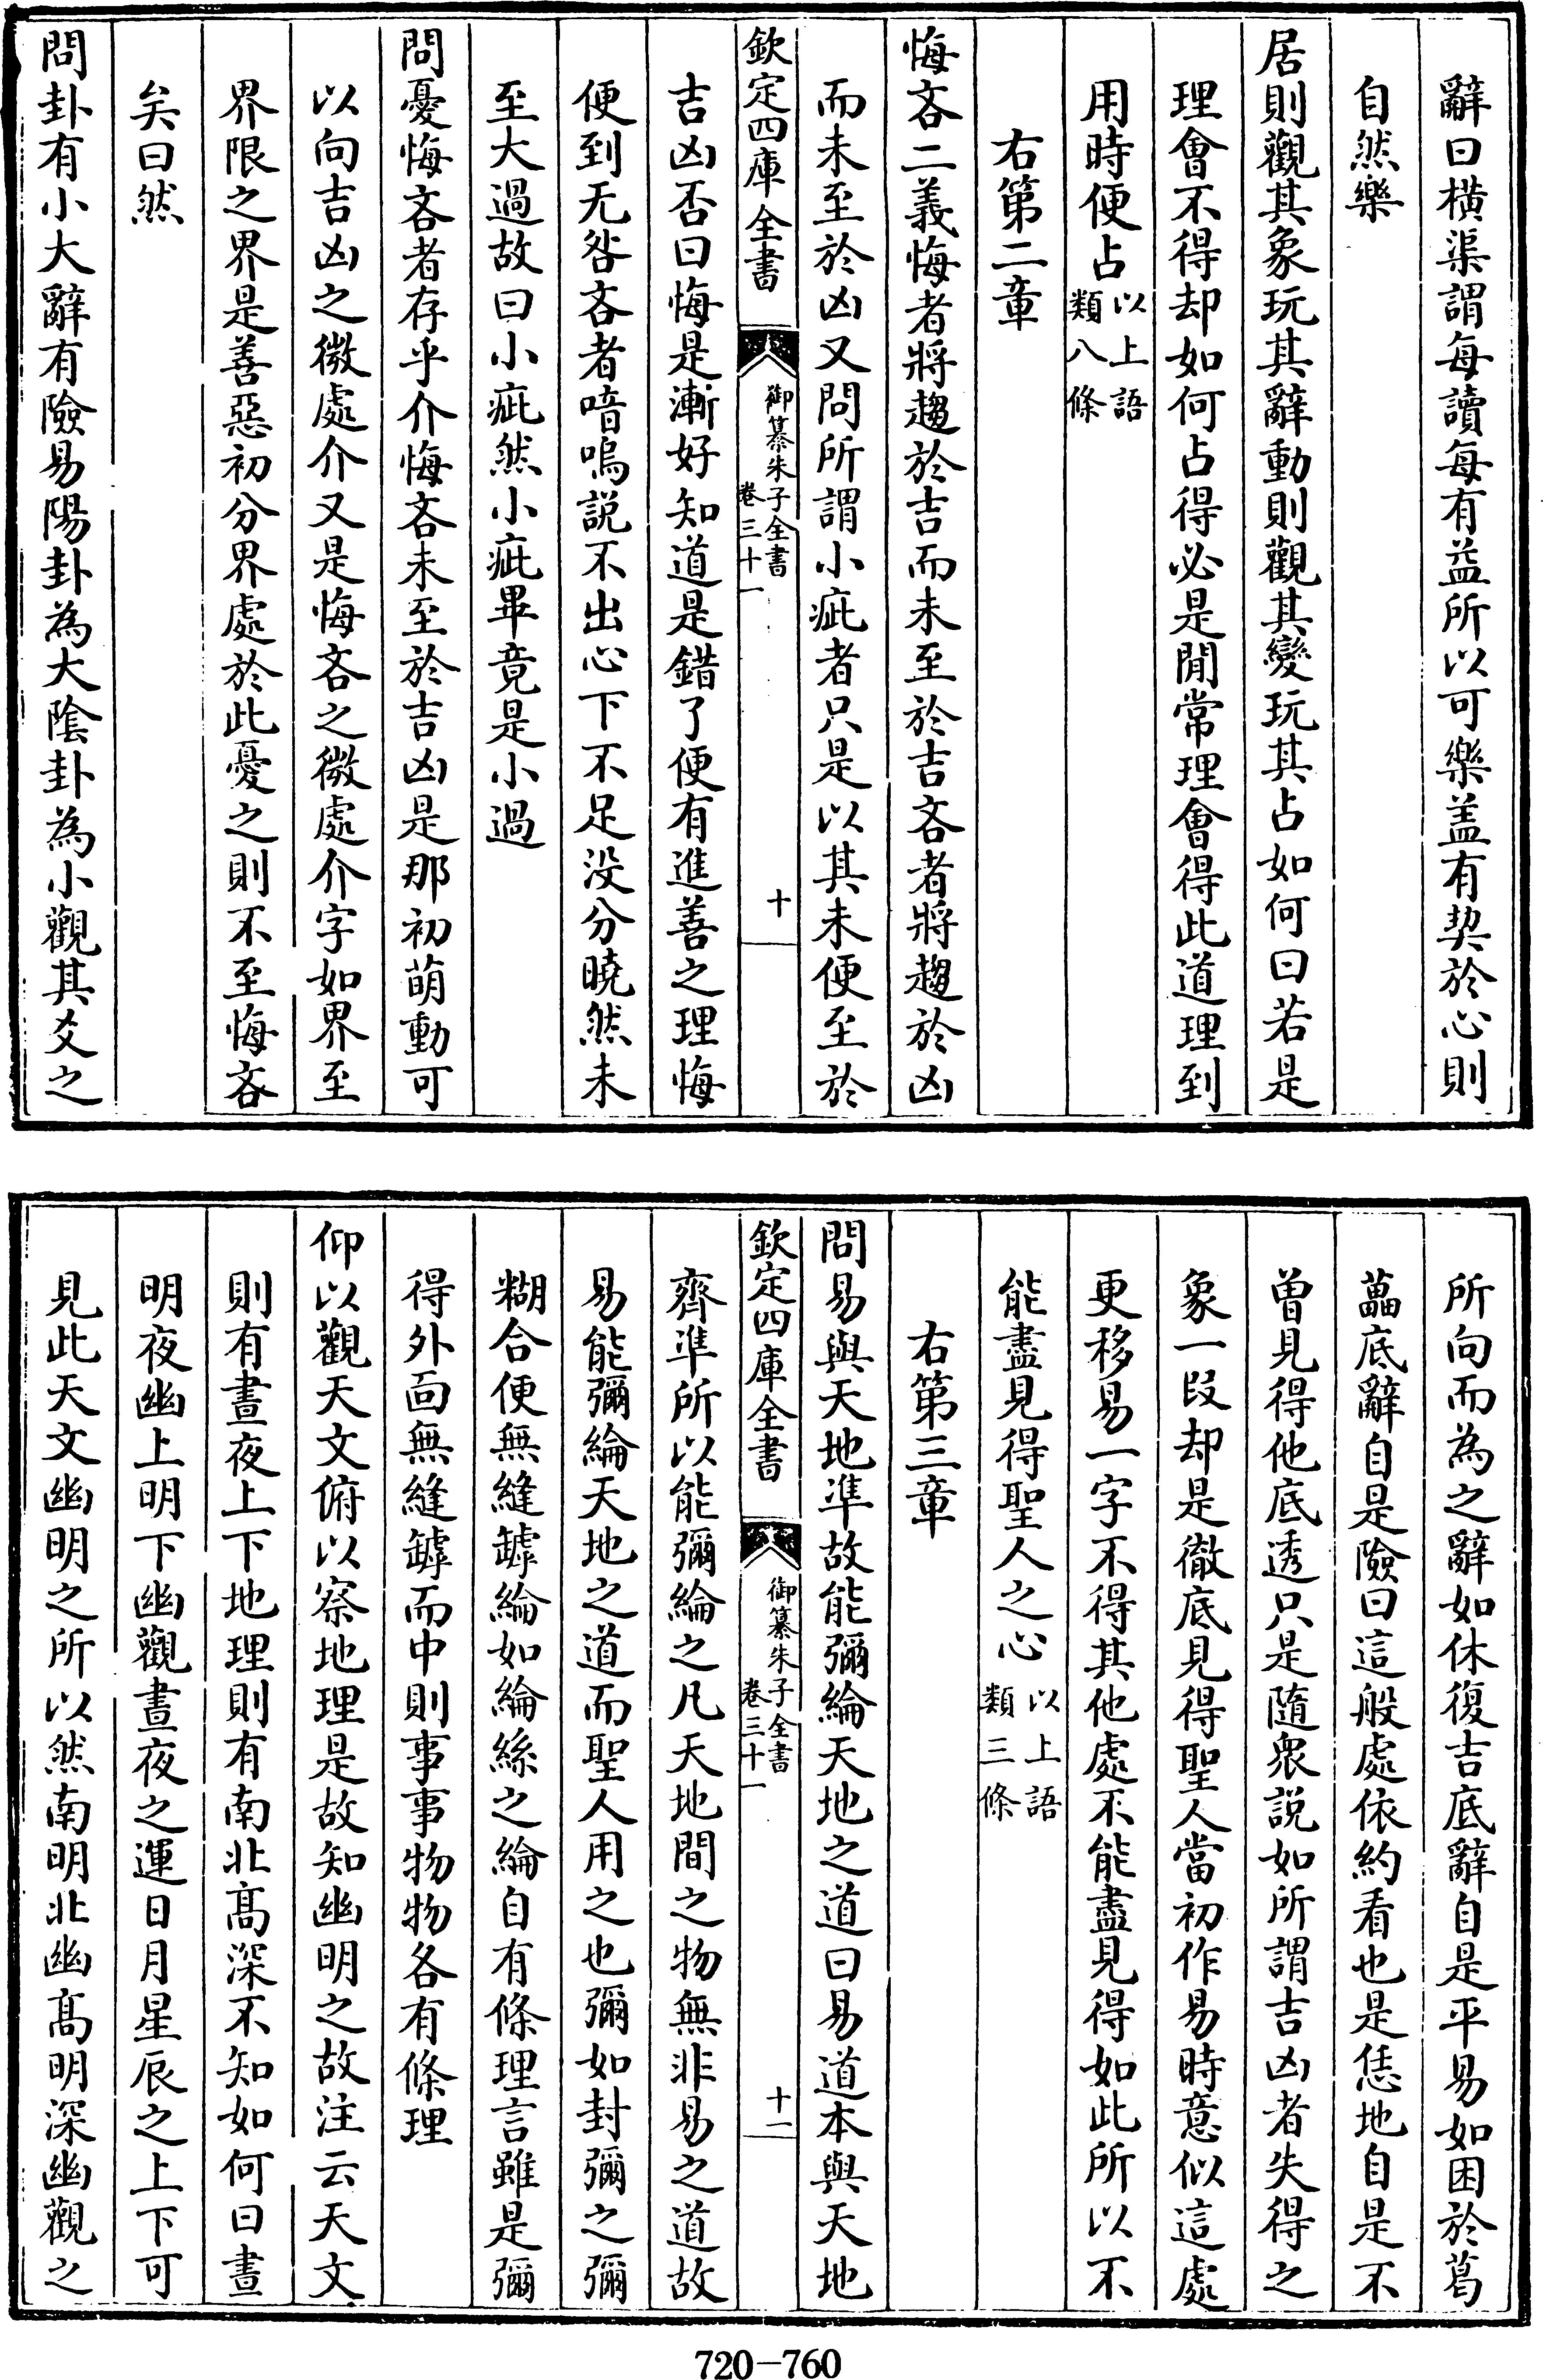 辭曰橫渠謂每讀每有益所以可樂盖有契於心則
自然樂
居則觀其象玩其辭動則觀其變玩其占如何曰若是
理會不得却如何占得必是閒常理會得此道理到
用時便占以上語類八條
右第二章
悔吝二義悔者將趨於吉而未至於吉吝者將趨於凶
而未至於凶又問所謂小疵者只是以其未便至於
欽定四庫全書 御纂朱子全書 卷三十一 十
吉凶否曰悔是漸好知道是錯了便有進善之理悔
便到无咎吝者喑嗚説不出心下不足没分曉然未
至大過故曰小疵然小疵畢竟是小過
問憂悔吝者存乎介悔吝未至於吉凶是那初萌動可
以向吉凶之微處介又是悔吝之微處介字如界至
界限之界是善惡初分界處於此憂之則不至悔吝
矣曰然
問卦有小大辭有險易陽卦為大陰卦為小觀其爻之
所向而為之辭如休復吉底辭自是平易如困於葛
藟底辭自是險曰這般處依約看也是恁地自是不
曾見得他底透只是隨衆説如所謂吉凶者失得之
象一段却是徹底見得聖人當初作易時意似這處
更移易一字不得其他處不能盡見得如此所以不
能盡見得聖人之心以上語類三條
右第三章
問易與天地準故能彌綸天地之道曰易道本與天地
欽定四庫全書 御纂朱子全書 卷三十一 十一
齊準所以能彌綸之凡天地間之物無非易之道故
易能彌綸天地之道而聖人用之也彌如封彌之彌
糊合便無縫罅綸如綸絲之綸自有條理言雖是彌
得外面無縫罅而中則事事物物各有條理
仰以觀天文俯以察地理是故知幽明之故注云天文
則有晝夜上下地理則有南北髙深不知如何曰晝
明夜幽上明下幽觀晝夜之運日月星辰之上下可
見此天文幽明之所以然南明北幽髙明深幽觀之
720－760